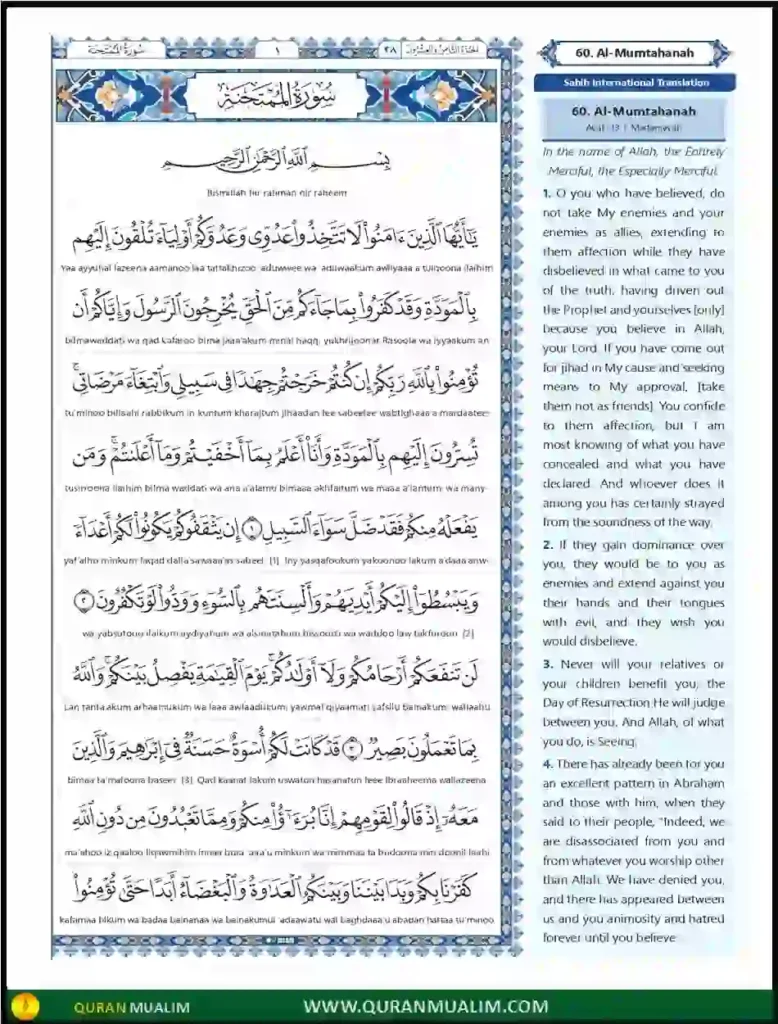 سُورَةُ المُمْتَحنَة
١
٢٨
الجُزْءُ الثَّامِنُ وَالعِشْرُونَ
سُورَةُ المُمْتَحنَةِ
بِسْمِ ٱللَّهِ ٱلرَّحْمَٰنِ ٱلرَّحِيمِ
Bismillah hir rahman nir raheem
يَٰٓأَيُّهَا ٱلَّذِينَ ءَامَنُوا۟ لَا تَتَّخِذُوا۟ عَدُوِّى وَعَدُوَّكُمْ أَوْلِيَآءَ تُلْقُونَ إِلَيْهِم
Yaa ayyuhal lazeena aamanoo laa tattakhizoo 'aduwwee wa 'aduwaakum awliyaaa'a tulqoona ilaihim
بِٱلْمَوَدَّةِ وَقَدْ كَفَرُوا۟ بِمَا جَآءَكُم مِّنَ ٱلْحَقِّ يُخْرِجُونَ ٱلرَّسُولَ وَإِيَّاكُمْ أَن
bilmawaddati wa qad kafaroo bima jaaa'akum minal haqq, yukhrijoonar Rasoola wa iyyaakum an
تُؤْمِنُوا۟ بِٱللَّهِ رَبِّكُمْ إِن كُنتُمْ خَرَجْتُمْ جِهَٰدًا فِى سَبِيلِى وَٱبْتِغَآءَ مَرْضَاتِى ۚ
tu'minoo billaahi rabbikum in kuntum kharajtum jihaadan fee sabeelee wabtighaaa'a mardaatee;
تُسِرُّونَ إِلَيْهِم بِٱلْمَوَدَّةِ وَأَنَا۠ أَعْلَمُ بِمَآ أَخْفَيْتُمْ وَمَآ أَعْلَنتُمْ ۚ وَمَن
tusirroona ilaihim bilma waddati wa ana a'alamu bimaaa akhfaitum wa maaa a'lantum; wa many-
يَفْعَلْهُ مِنكُمْ فَقَدْ ضَلَّ سَوَآءَ ٱلسَّبِيلِ ١ إِن يَثْقَفُوكُمْ يَكُونُوا۟ لَكُمْ أَعْدَآءً
yaf'alho minkum faqad dalla sawaaa'as sabeel [1] Iny yasqafookum yakoonoo lakum a'daaa anw-
وَيَبْسُطُوٓا۟ إِلَيْكُمْ أَيْدِيَهُمْ وَأَلْسِنَتَهُم بِٱلسُّوٓءِ وَوَدُّوا۟ لَوْ تَكْفُرُونَ ٢
wa yabsutooo ilaikum aydiyahum wa alsinatahum bissooo'i wa waddoo law takfuroon [2]
لَن تَنفَعَكُمْ أَرْحَامُكُمْ وَلَآ أَوْلَٰدُكُمْ ۚ يَوْمَ ٱلْقِيَٰمَةِ يَفْصِلُ بَيْنَكُمْ ۚ وَٱللَّهُ
Lan tanfa'akum arhaamukum wa laaa awlaadukum; yawmal qiyaamati yafsilu bainakum; wallaahu
بِمَا تَعْمَلُونَ بَصِيرٌ ٣ قَدْ كَانَتْ لَكُمْ أُسْوَةٌ حَسَنَةٌ فِىٓ إِبْرَٰهِيمَ وَٱلَّذِينَ
bimaa ta'maloona baseer [3] Qad kaanat lakum uswatun hasanatun feee Ibraaheema wallazeena
مَعَهُۥٓ إِذْ قَالُوا۟ لِقَوْمِهِمْ إِنَّا بُرَءَٰٓؤُا۟ مِنكُمْ وَمِمَّا تَعْبُدُونَ مِن دُونِ ٱللَّهِ
ma'ahoo iz qaaloo liqawmihim innaa bura 'aaa'u minkum wa mimmaa ta'budoona min doonil laahi
كَفَرْنَا بِكُمْ وَبَدَا بَيْنَنَا وَبَيْنَكُمُ ٱلْعَدَٰوَةُ وَٱلْبَغْضَآءُ أَبَدًا حَتَّىٰ تُؤْمِنُوا۟
kafarnaa bikum wa badaa bainanaa wa bainakumul 'adaawatu wal baghdaaa'u abadan hattaa tu'minoo
60. Al-Mumtahanah
Sahih International Translation
60. Al-Mumtahanah
In the name of Allah, the Entirely
Merciful, the Especially Merciful.
1. O you who have believed, do
not take My enemies and your
enemies as allies, extending to
them affection while they have
disbelieved in what came to you
of the truth, having driven out
the Prophet and yourselves [only]
because you believe in Allah,
your Lord. If you have come out
for jihad in My cause and seeking
means to My approval, [take
them not as friends]. You confide
to them affection, but I am
most knowing of what you have
concealed and what you have
declared. And whoever does it
among you has certainly strayed
from the soundness of the way.
2. If they gain dominance over
you, they would be to you as
enemies and extend against you
their hands and their tongues
with evil, and they wish you
would disbelieve.
3. Never will your relatives or
your children benefit you; the
Day of Resurrection He will judge
between you. And Allah, of what
you do, is Seeing.
4. There has already been for you
an excellent pattern in Abraham
and those with him, when they
said to their people, "Indeed, we
are disassociated from you and
from whatever you worship other
than Allah. We have denied you,
and there has appeared between
us and you animosity and hatred
forever until you believe
QURAN MUALIM
WWW.QURANMUALIM.COM